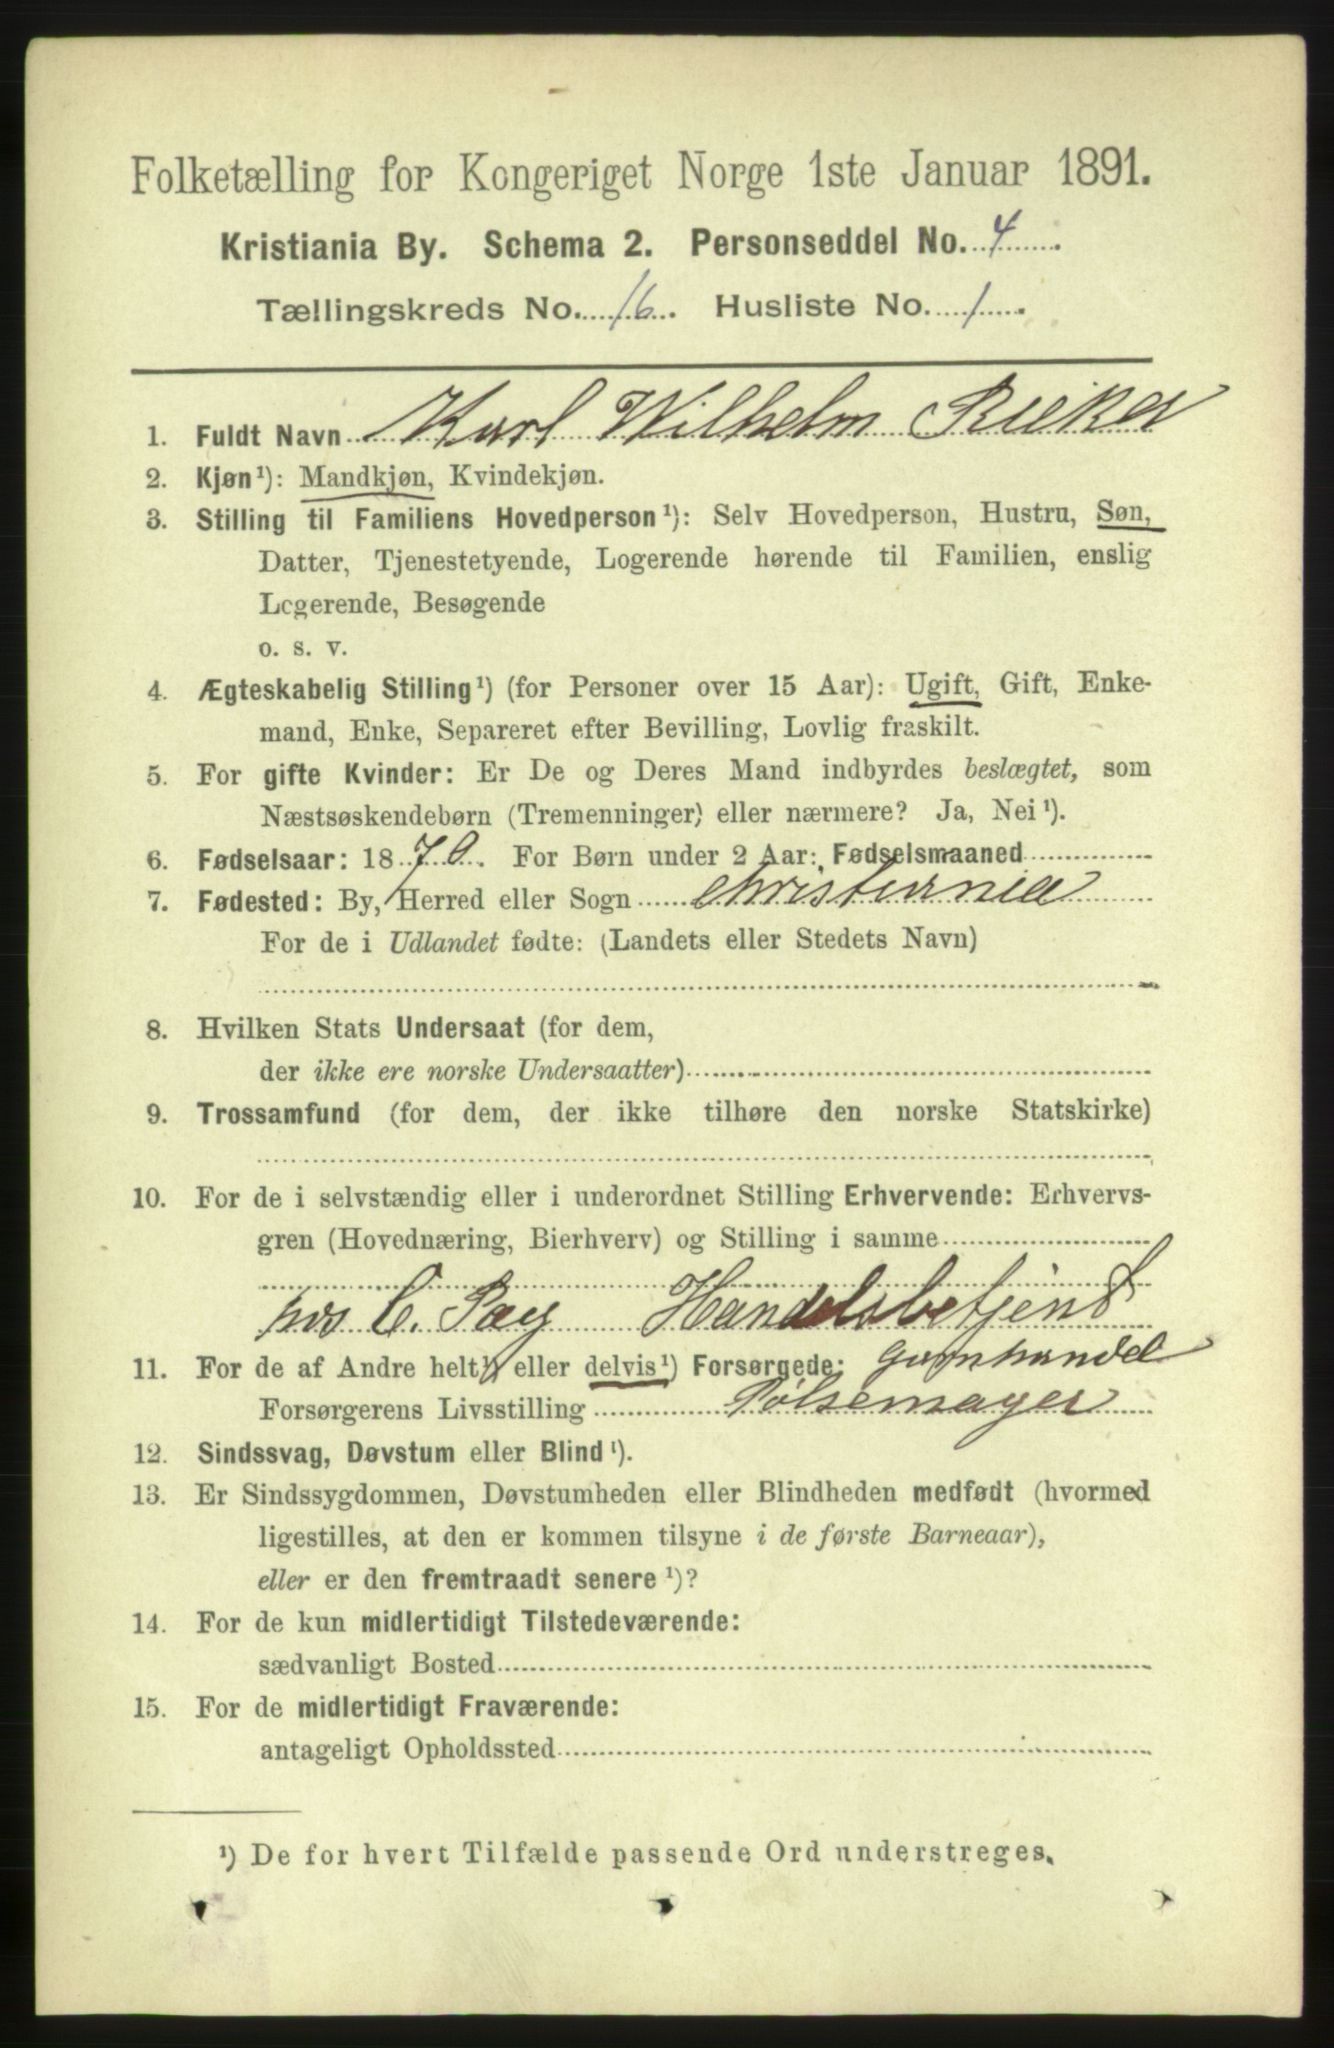 Folketælling for Kongeriget Norge 1ste Januar 1891.
Kristiania By. Schema 2. Personseddel No. 4
Tællingskreds No. 16. Husliste No. 1.
1. Fuldt Navn Karl Wilhelm Rieker
2. Kjøn¹): Mandkjøn, Kvindekjøn.
3. Stilling til Familiens Hovedperson¹): Selv Hovedperson, Hustru, Søn,
Datter, Tjenestetyende, Logerende hørende til Familien, enslig
Logerende, Besøgende
o. s. v.
4. Ægteskabelig Stilling¹) (for Personer over 15 Aar): Ugift, Gift, Enke-
mand, Enke, Separeret efter Bevilling, Lovlig fraskilt.
5. For gifte Kvinder: Er De og Deres Mand indbyrdes beslægtet, som
Næstsøskendebørn (Tremenninger) eller nærmere? Ja, Nei¹).
6. Fødselsaar: 1870. For Børn under 2 Aar: Fødselsmaaned
7. Fødested: By, Herred eller Sogn christiania
For de i Udlandet fødte: (Landets eller Stedets Navn)
8. Hvilken Stats Undersaat (for dem,
der ikke ere norske Undersaatter)
9. Trossamfund (for dem, der ikke tilhøre den norske Statskirke)
10. For de i selvstændig eller i underordnet Stilling Erhvervende: Erhvervs-
gren (Hovednæring, Bierhverv) og Stilling i samme
hos C. Pay Handelsbetjent
garnhandel
11. For de af Andre helt¹) eller delvis¹) Forsørgede:
Forsørgerens Livsstilling Pølsemager
12. Sindssvag, Døvstum eller Blind¹).
13. Er Sindssygdommen, Døvstumheden eller Blindheden medfødt (hvormed
ligestilles, at den er kommen tilsyne i de første Barneaar),
eller er den fremtraadt senere¹)?
14. For de kun midlertidigt Tilstedeværende:
sædvanligt Bosted
15. For de midlertidigt Fraværende:
antageligt Opholdssted
¹) De for hvert Tilfælde passende Ord understreges.